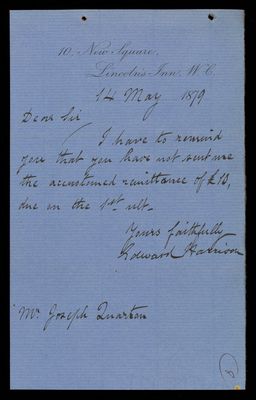 10, New Square,
Lincoln's Inn, W.C.
14 May 1879
Dear Sir
I have to remind
you that you have not sent me
the accustomed remittance of £13,
due on the 1st ult.
Yours faithfully
Edward Harrison
Mr. Joseph Quarton